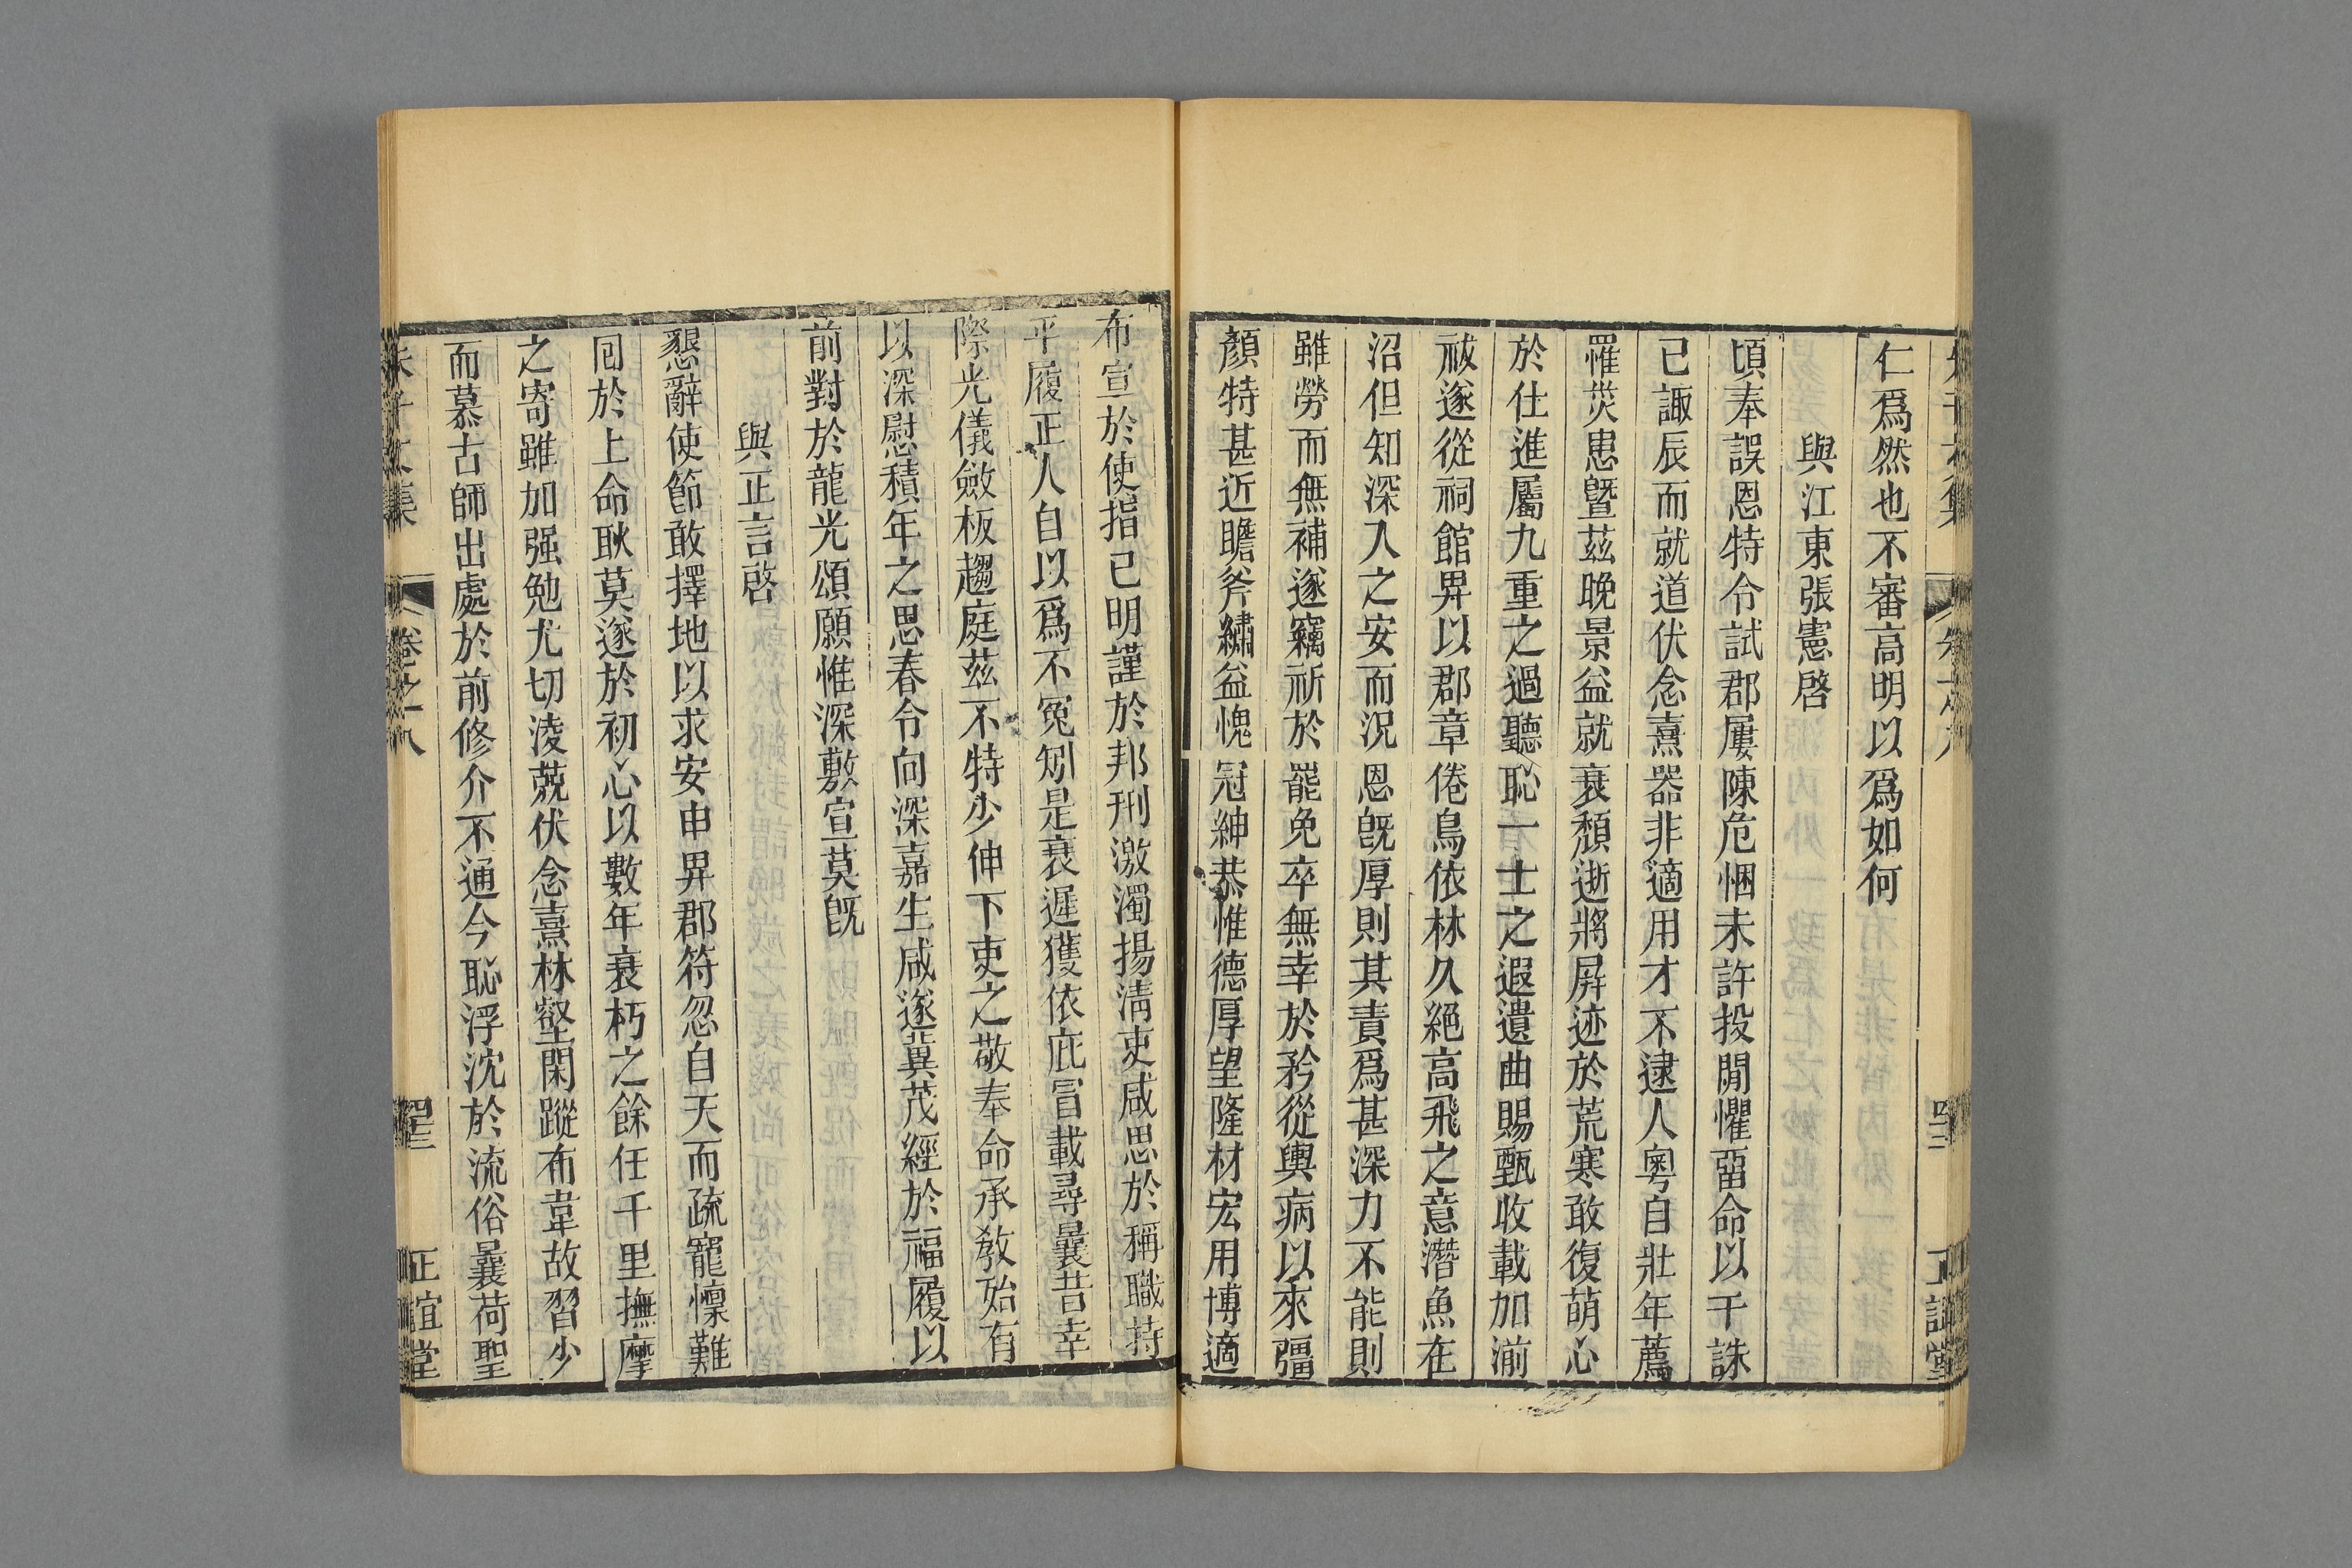 仁爲然也不審高明以爲如何
與江東張憲啓
頃奉誤恩特令試郡屢陳危悃未許投閒懼畱命以干誅
已諏辰而就道伏念熹器非適用才不逮人粵自壯年薦
罹災患曁茲晚景益就衰頹逝將屛迹於荒寒敢復萌心
於仕進屬九重之過聽恥一士之遐遺曲賜甄收載加湔
祓遂從祠館畀以郡章倦鳥依林久絕高飛之意潛魚在
沼但知深入之安而況恩旣厚則其責爲甚深力不能則
雖勞而無補遂竊祈於罷免卒無幸於矜從輿病以來彊
顏特甚近瞻斧繡益愧冠紳恭惟德厚望隆材宏用博適
布宣於使指已明謹於邦刑激濁揚淸吏咸思於稱職持
平履正人自以爲不冤矧是衰遲獲依庇冒載尋曩昔幸
際光儀斂板趨庭茲不特少伸下吏之敬奉命承敎殆有
以深慰積年之思春令向深嘉生咸遂冀茂經於福履以
前對於龍光頌願惟深敷宣莫旣
與正言啓
懇辭使節敢擇地以求安申畀郡符忽自天而疏寵懍難
回於上命耿莫遂於初心以數年衰朽之餘任千里撫摩
之寄雖加强勉尤切淩兢伏念熹林壑閑蹤布韋故習少
而慕古師出處於前修介不通今恥浮沈於流俗曩荷聖
朱子文集 卷之十八 罜 正誼堂